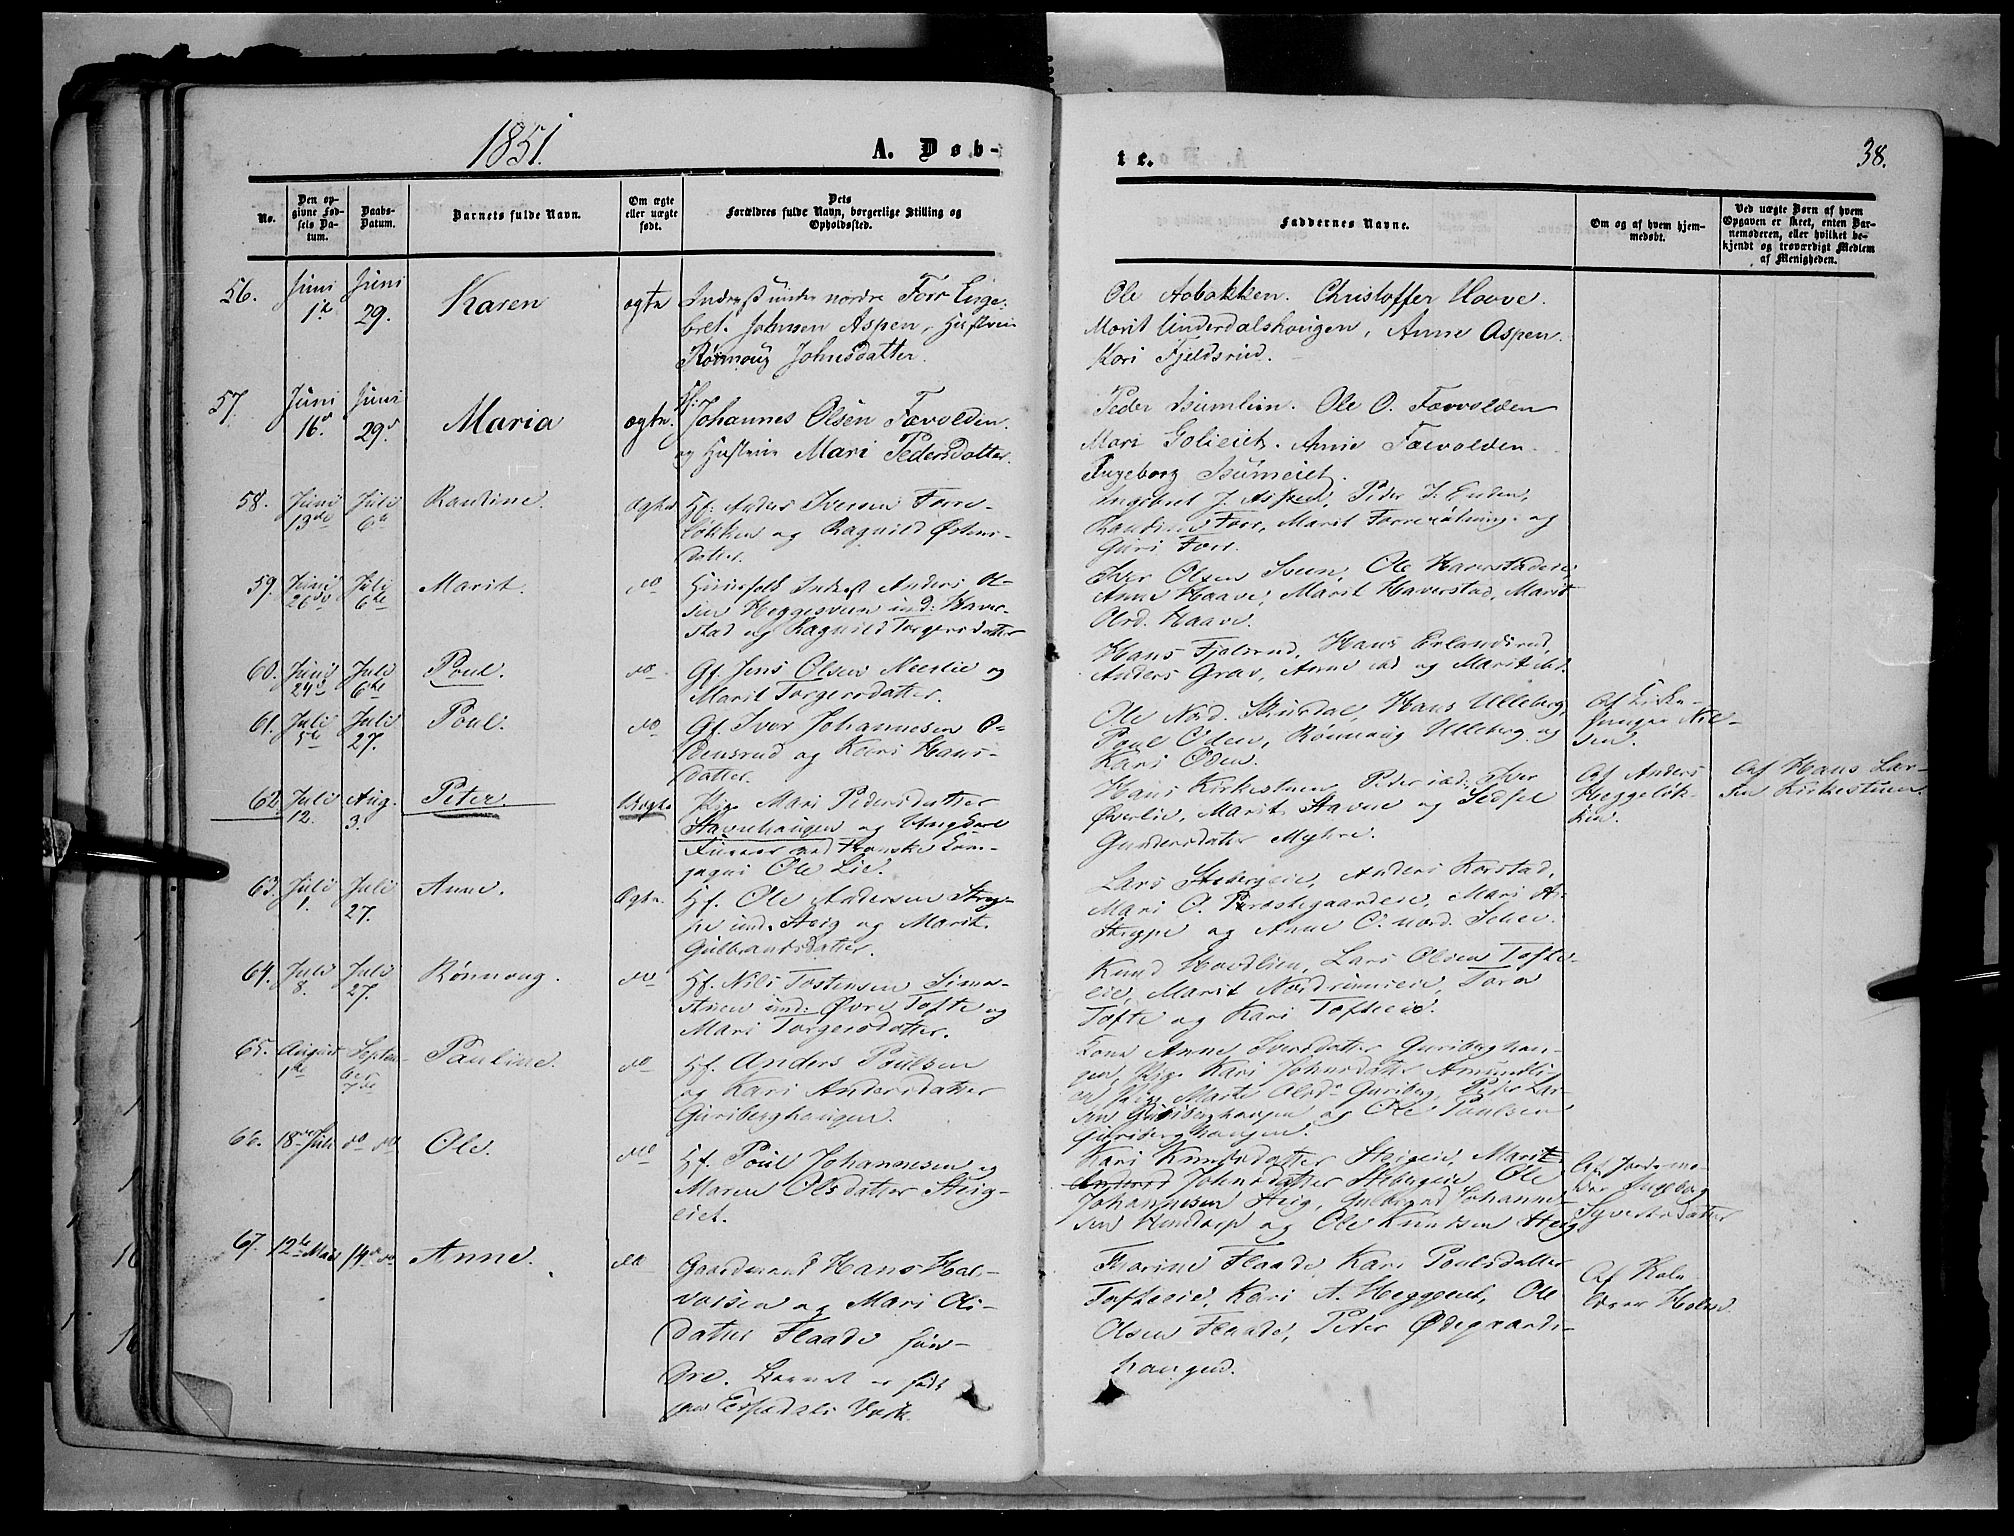 1851.
A. Døb-
te.
38.
No.
Den op-
givne Fød-
sels Da-
tum.
Daabs-
Datum.
Barnets fulde Navn.
Om ægte
eller uægte
født.
Dets
Forældres fulde Navn, borgerlige Stilling og
Opholdssted.
Faddernes Navne.
Om og af hvem hjem-
medøbt.
Ved uægte Børn af hvem
Opgaven er skeet, enten Bar-
nemoderen, eller hvilket be-
kjendt og troværdigt Medlem
af Menigheden.
56.
Juni
Juni
29.
Karen
ægte
Inderst under nordre Forr Enge-
bret Johnsen Aspen, Hustrue
Rønnoug Johnsdatter.
Ole Aabakken. Christoffer Haave.
Marit Underdalshougen, Anne Aspen.
Kari Fjeldsrud.
57.
Juni
16d
Juni
29d
Maria
ægte.
Hf: Johannes Olsen Fævolden
og Hustrue Mari Pedersdatter.
Peder Isumlien. Ole O. Fævolden
Mari Golieiet. Anne Fævolden.
Ingeborg Isumeiet.
58.
Juni
13de
Juli
6te
Rantine.
Ægte
Hf. Anders Iversen Forre-
løkken og Ragnild Østens-
datter.
Ingebret J. Aspen, Peder I.
Forr, Marit og
Guri Forr.
59.
Juni
26de
Juli
6te
Marit.
do
Huusfolk Inderst Anders Ol-
sen Heggesveen und: Haver-
stad og Ragnild Torgersdatter
Iver Olsen Sveen, Ole Haverstadeie,
Anne Haave, Marit Haverstad, Marit
Olsd. Haave.
60.
Juni
24de
Juli
6te
Poul.
do
Gf. Jens Olsen Neeslie og
Marit Torgersdatter.
Hans Fjelsrud, Hans Erlandsrud,
Anders Grav, Anne ibd og Marit ibd.
61.
Juli
5te
Juli
27.
Poul.
do
Gf. Iver Johannesen O-
densrud og Kari Hans-
datter.
Ole Nord. Skurdal, Hans Ulleberg,
Poul Oden, Rønnoug Ulleberg og
Kari Oden.
Af Kirke-
sanger Niel-
sen.
62.
Juli
12.
Aug.
3.
Peter.
Uægte
Pige Mari Pedersdatter
Stavnehaugen og Ungkarl
Kom-
pagni Ole Lie.
Hans Kirkestuen, Peder ibd: Iver
Øverlie, Marit Stavne og Sidsel
Gundersdatter Myhre.
Af Anders
Heggeløk-
ken.
Af Hans Lar-
sen Kirkestuen.
63.
Juli
1.
Juli
27.
Anne.
Ægte.
Hf. Ole Andersen Stryp-
pe und. Steig og Marit
Gulbrandsdatter.
Lars Stebergeie, Anders Korstad,
Mari O. Præstegaardeie, Mari A.
Stryppe og Anne O. nord.
64.
Juli
8.
Juli
27.
Rønnoug.
do
Hf. Nils Tostensen Simen-
stuen und: Øvre Tofte og
Mari Torgersdatter.
Knud Hovdlien, Lars Olsen Tofte-
eie, Marit Nordrumeie, Tora
Tofte og Kari Tofteeie.
65.
August
1te
Septem-
ber
7de
Pauline.
do
Hf. Anders Poulsen
og Kari Andersdatter
Guriberghaugen.
Kone Anne Iversdatter Guriberghau-
gen, Pige Kari Johnsdatter Amundli-
en, Pige Marte Olsd. Guriberg, Peder Lar-
sen Guriberghaugen og Ole Poulsen
Guriberghaugen.
66.
18de Juli
do do
Ole.
do
Hf. Poul Johannesen og
Maren Olsdatter Steig-
eiet.
Kari Knudsdatter Steigeie, Marit
Johnsdatter Stebergeie, Ole
Johannesen Steig, Johanne-
sen Hundorp og Ole Knudsen Steig
Af Jordemo-
der Ingeborg
Syverts datter
67.
12te Mai
14de do
Anne.
do
Gaardmand Hans Hal-
vorsen og Mari Ols-
datter Flaade søn-
dre. Barnet er født
paa Espedals Værk.
Thorine Flaade, Kari Poulsdatter
Tofteeie, Kari A. Heggeeiet, Ole
Olsen Flaade, Peter Ødegaards-
haugen.